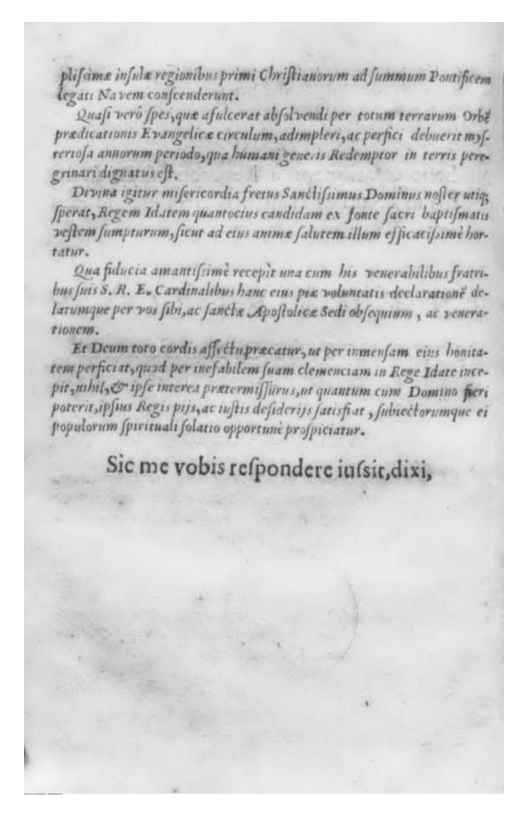 plißimæ inſulæ regionibus primi Chriſtianorum ad ſummum Pontificem
legati Navem conſcenderunt.
Quaſi verò ſpes, quæ afulcerat abſolvendi per totum terrarum Orbẽ
prædicationis Evangelicæ circulum, adimpleri, ac perfici debuerit myſ-
terioſa annorum periodo, qua humani generis Redemptor in terris pere-
grinari dignatus eſt.
Divina igitur miſericordia fretus Sanctiſsimus Dominus noſter utiq;
ſperat, Regem Idatem quantocius candidam ex fonte ſacri baptiſmatis
veſtem ſumpturum, ſicut ad eius animæ ſalutem illum efficaciſsimè hor-
tatur.
Qua fiducia amantiſsimè recepit una cum his venerabilibus fratri-
bus ſuis S. R. E. Cardinalibus hanc eius piæ voluntatis declarationẽ de-
latumque per vos ſibi, ac ſanctæ Apoſtolicæ Sedi obſequium, ac venera-
tionem.
Et Deum toto cordis affectu præcatur, ut per inmenſam eius bonita-
tem perficiat, quod per inefabilem ſuam clemenciam in Rege Idate ince-
pit, nihil, & ipſe interea prætermiſſurus, ut quantum cum Domino fieri
poterit, ipſius Regis pijs, ac iuſtis deſiderijs ſatisfiat, ſubiectorumque ei
populorum ſpirituali ſolatio opportunè proſpiciatur.
Sic me vobis reſpondere iuſsit, dixi,